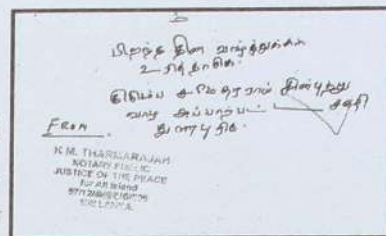 பிறந்த தின வாழ்த்துக்கள்
உரித்தாகுக.
வாழ அப்பாற்பட்ட சக்தி
துணை புரிக.
FROM
K.M. THARMARAJAH
NOTARY PUBLIC
JUSTICE OF THE PEACE
for All Island
SRI LANKA